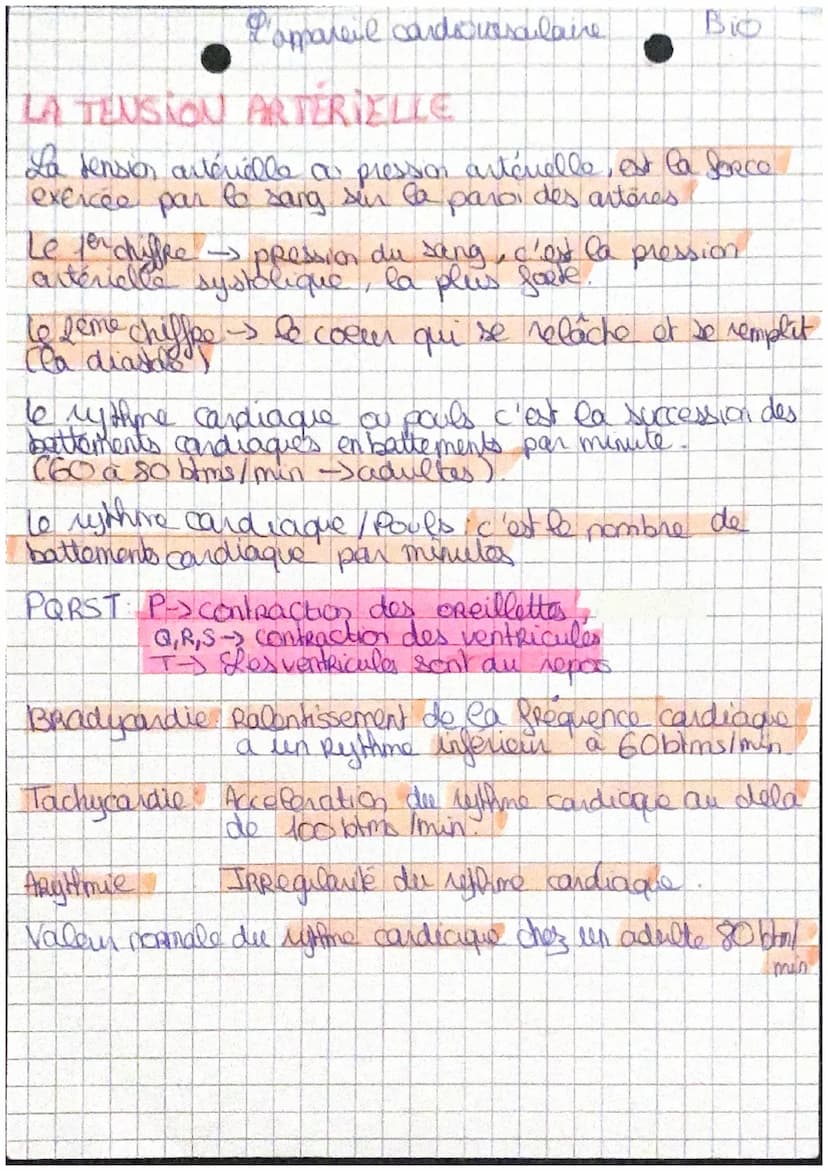 L'appareil cardiovasculaire Bio
LA TENSION ARTÉRIELLE
La tension artérielle ou pression artérielle, est la force
exercée par le sang sur la paroi des artères
Le 1er chiffre → pression du sang, c'est la pression
artérielle systolique, la plus forte.
Le 2ème chiffre → le coeur qui se relâche et se remplit
(la diastole)
le rythme cardiaque ou pouls c'est la succession des
battements cardiaques en battements par minute.
(60 à 80 btms/min → adultes).
Le rythme cardiaque / Pouls : c'est le nombre de
battements cardiaque par minutes
PQRST: P→ contraction des oreillettes
Q,R,S → contraction des ventricules
T→ les ventricules sont au repos
Bradycardie: Ralentissement de la fréquence cardiaque
a un Rythme inférieur à 60btms/min
Tachycardie: Acceleration du rythme cardiaque au delà
de 100 btms /min.
Arythmie IRRegularité du rythme cardiaque.
Valeur normale du rythme cardiaque chez un adulte 80 btm/
min